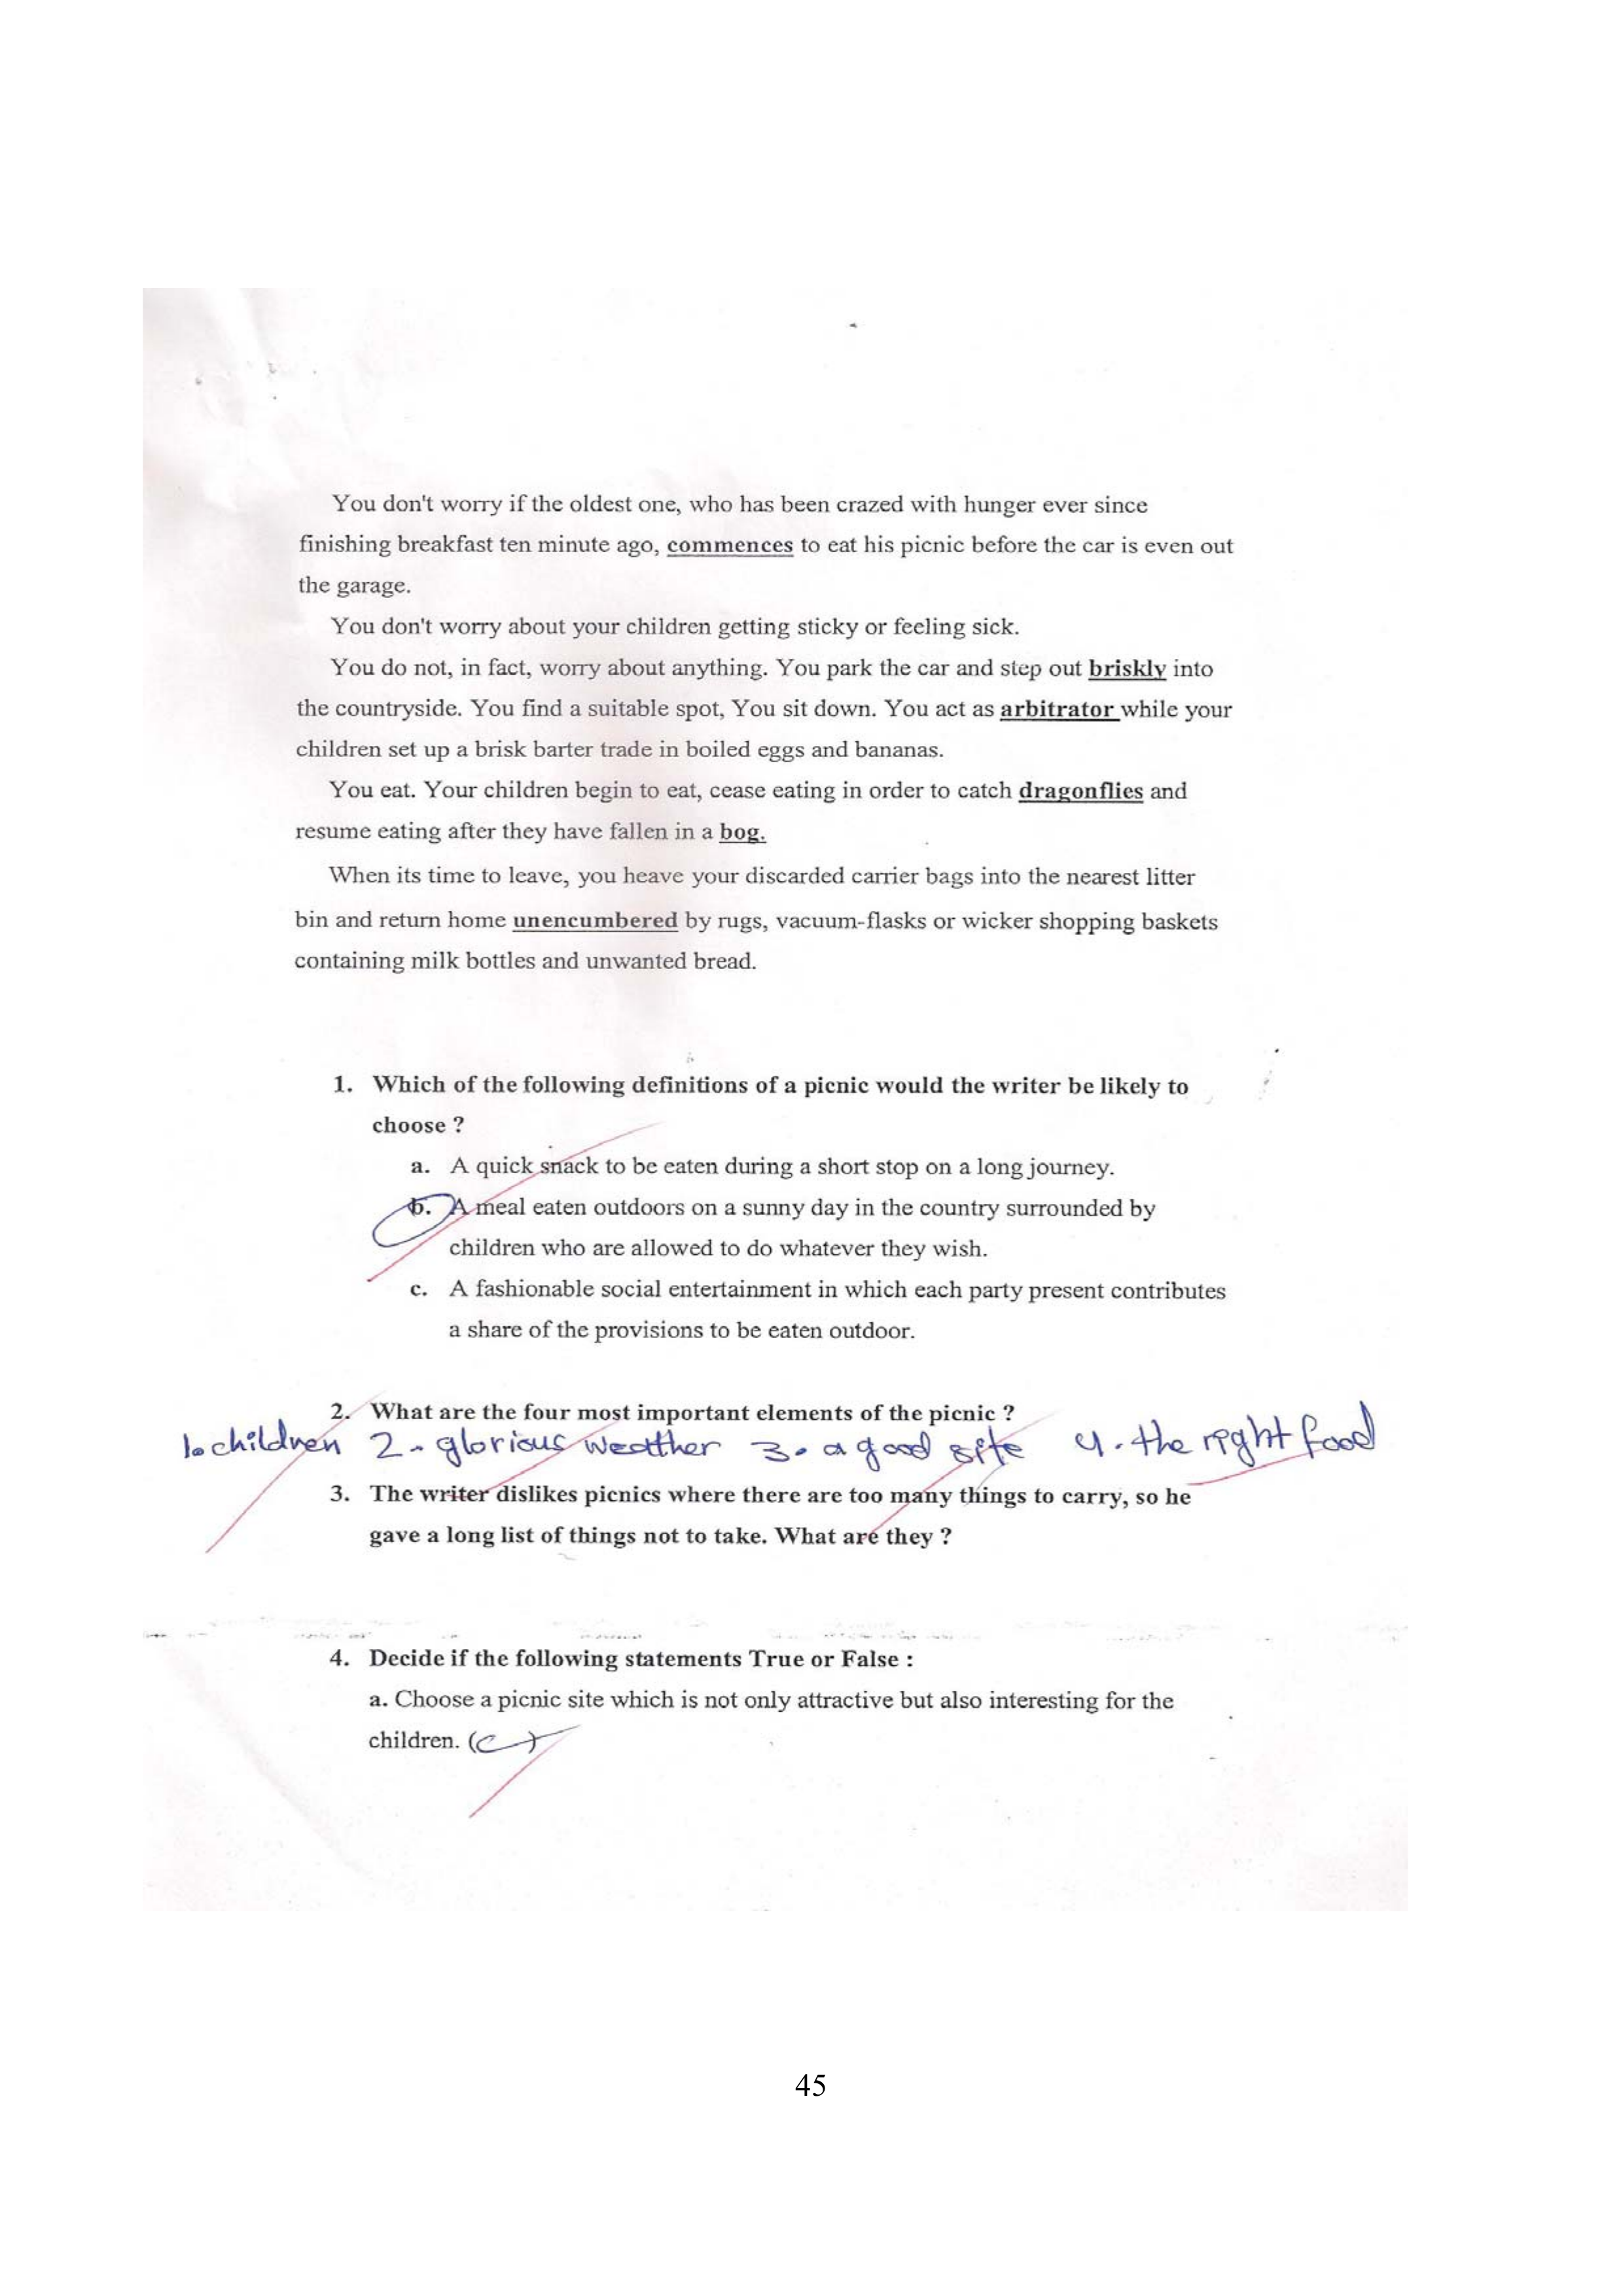 You don't worry if the oldest one, who has been crazed with hunger ever since
finishing breakfast ten minute ago, commences to eat his picnic before the car is even out
the garage.
You don't worry about your children getting sticky or feeling sick.
You do not, in fact, worry about anything. You park the car and step out briskly into
the countryside. You find a suitable spot, You sit down. You act as arbitrator while your
children set up a brisk barter trade in boiled eggs and bananas.
You eat. Your children begin to eat, cease eating in order to catch dragonflies and
resume eating after they have fallen in a bog.
When its time to leave, you heave your discarded carrier bags into the nearest litter
bin and return home unencumbered by rugs, vacuum-flasks or wicker shopping baskets
containing milk bottles and unwanted bread.
1. Which of the following definitions of a picnic would the writer be likely to
choose ?
a. A quick snack to be eaten during a short stop on a long journey.
b. A meal eaten outdoors on a sunny day in the country surrounded by
children who are allowed to do whatever they wish.
c. A fashionable social entertainment in which each party present contributes
a share of the provisions to be eaten outdoor.
2. What are the four most important elements of the picnic ?
1. children 2. glorious weather 3. a good site 4. the right food
3. The writer dislikes picnics where there are too many things to carry, so he
gave a long list of things not to take. What are they ?
4. Decide if the following statements True or False :
a. Choose a picnic site which is not only attractive but also interesting for the
children. ( )
45